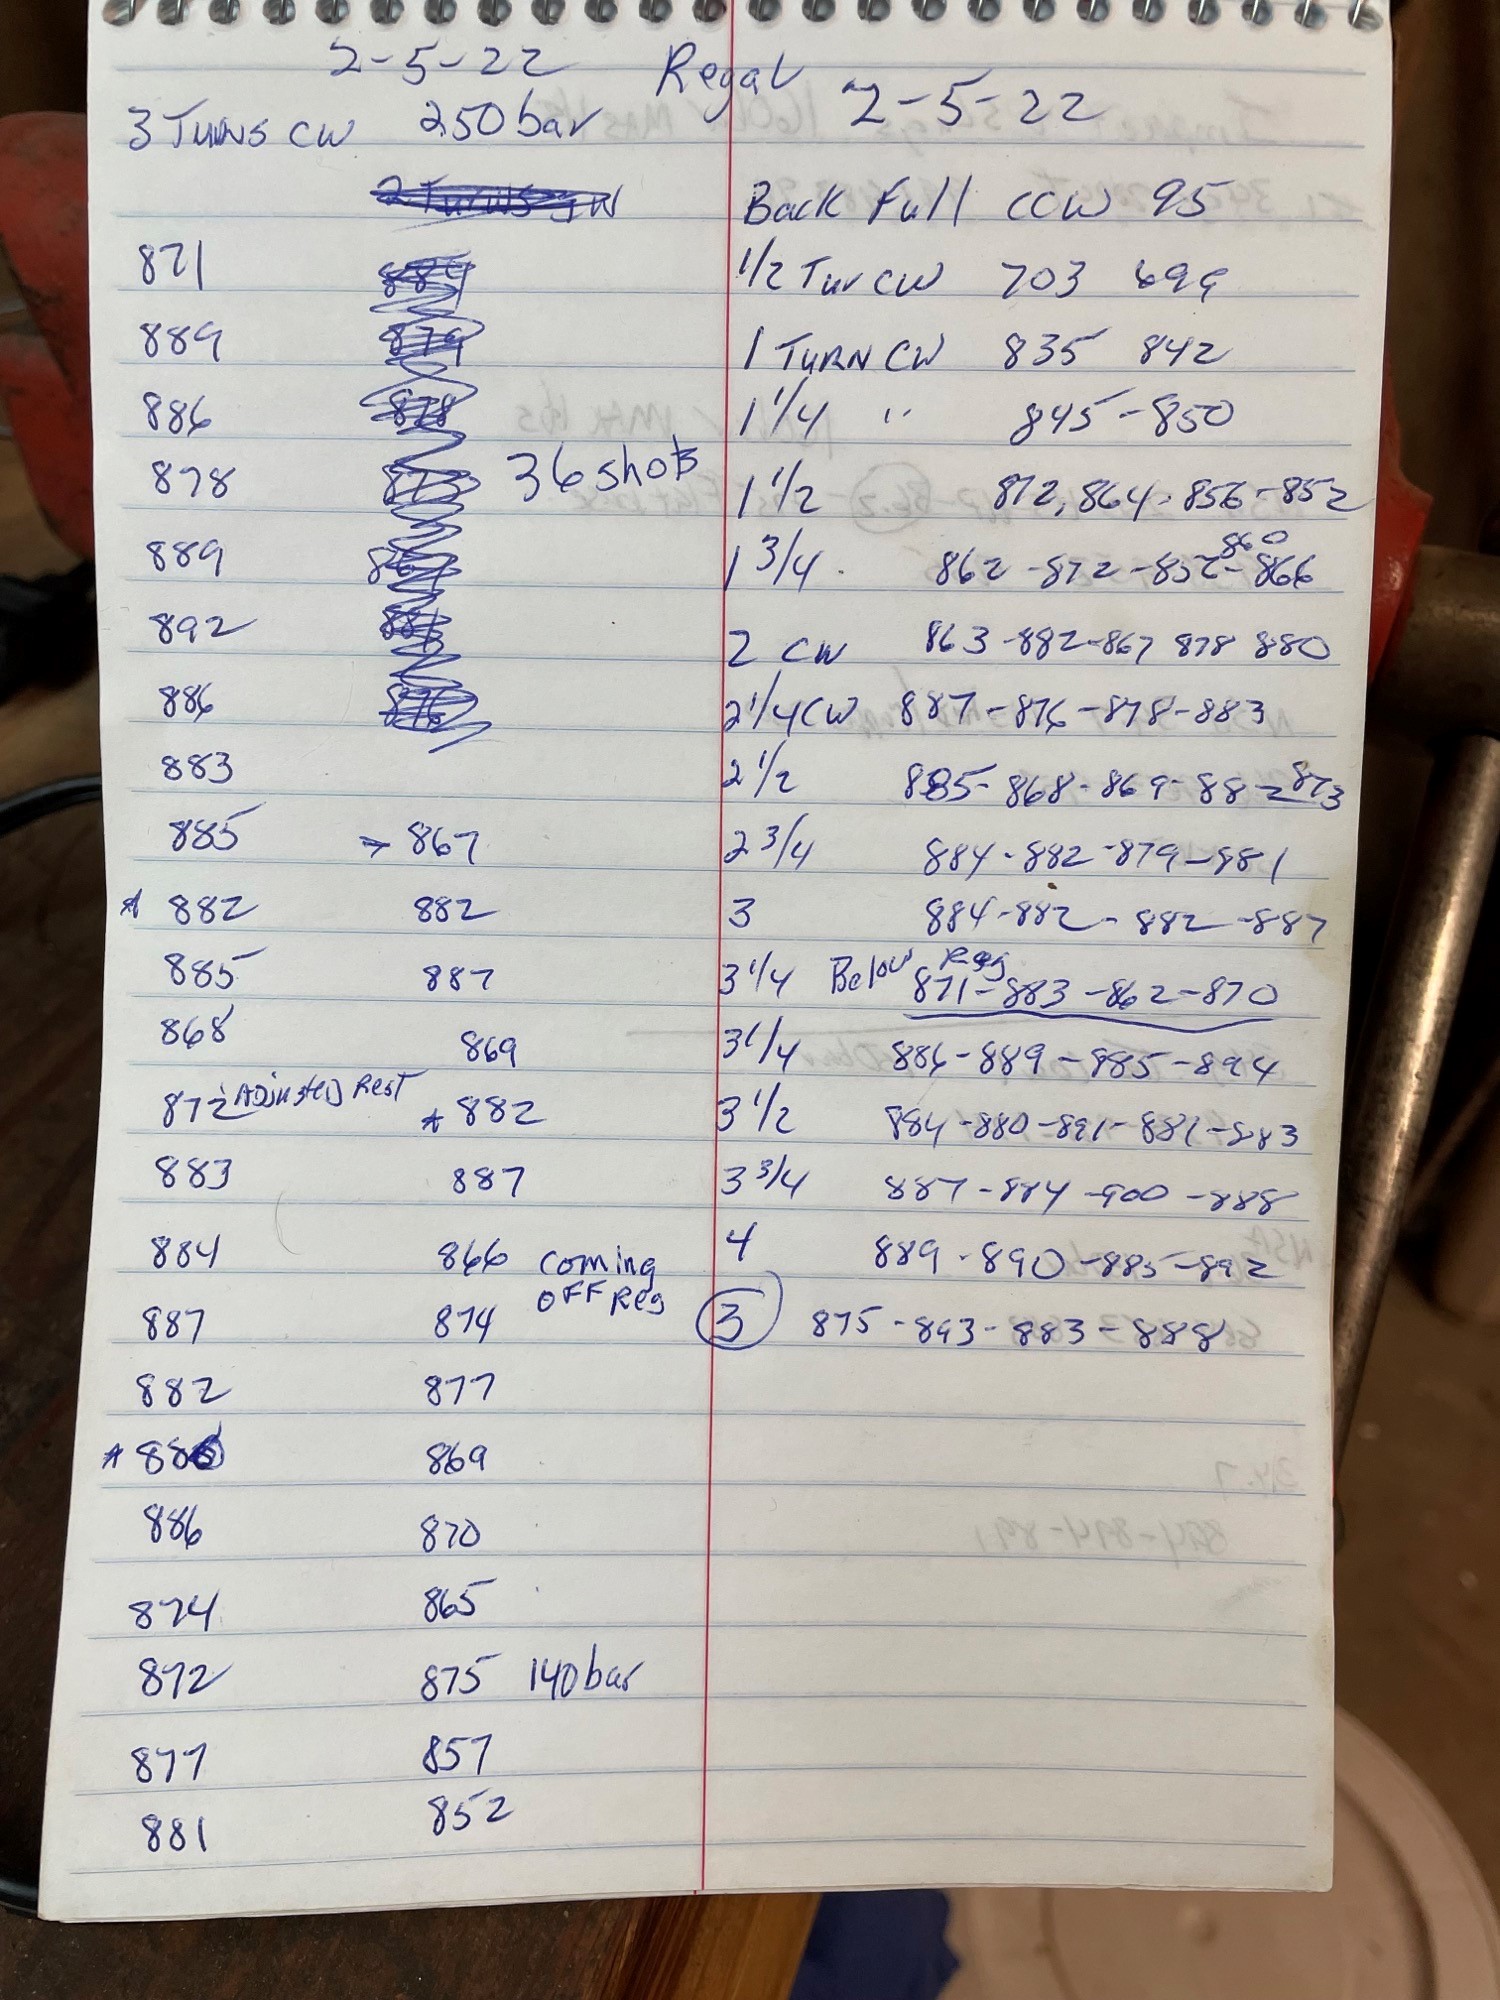 2-5-22 Regal 2-5-22
3 TURNS CW 250 bar
Back Full CCW 95
871 1/2 Tur CW 703 699
889 1 TURN CW 835 842
886 1 1/4 " 845-850
878 36 shots 1 1/2 872, 864-856-852
889 1 3/4 862-872-852-860 866
892 2 CW 863-882-867 878 880
886 2 1/4 CW 887-876-878-883
883 2 1/2 885-868-869-882 873
885 → 867 2 3/4 884-882-879-881
* 882 882 3 884-882-882-887
885 887 3 1/4 Below Reg 871-883-862-870
868 869 3 1/4 886-889-885-894
872 Adjusted Rest * 882 3 1/2 884-880-891-881-883
883 887 3 3/4 887-884-900-888
884 866 coming OFF Reg 4 889-890-885-892
887 874 3 875-893-883-888
882 877
* 886 869
886 870
874 865
872 875 140 bar
877 857
881 852